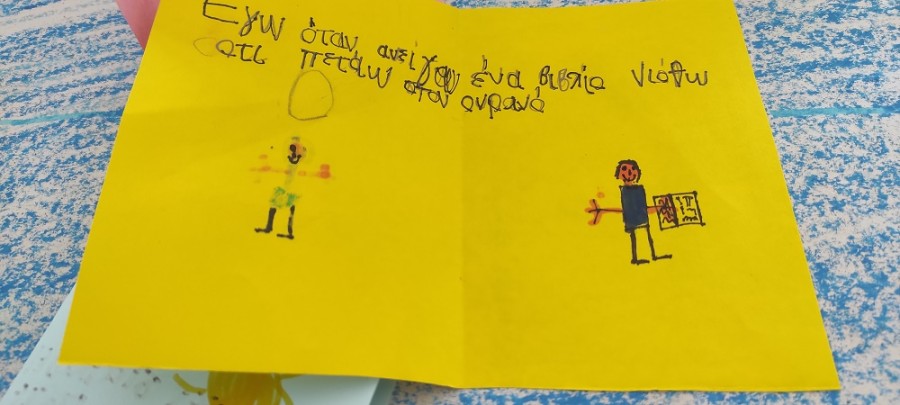 Εγω όταν ανείγω ένα βιβλίο νιόθω
οτι πετάω στον ουρανό